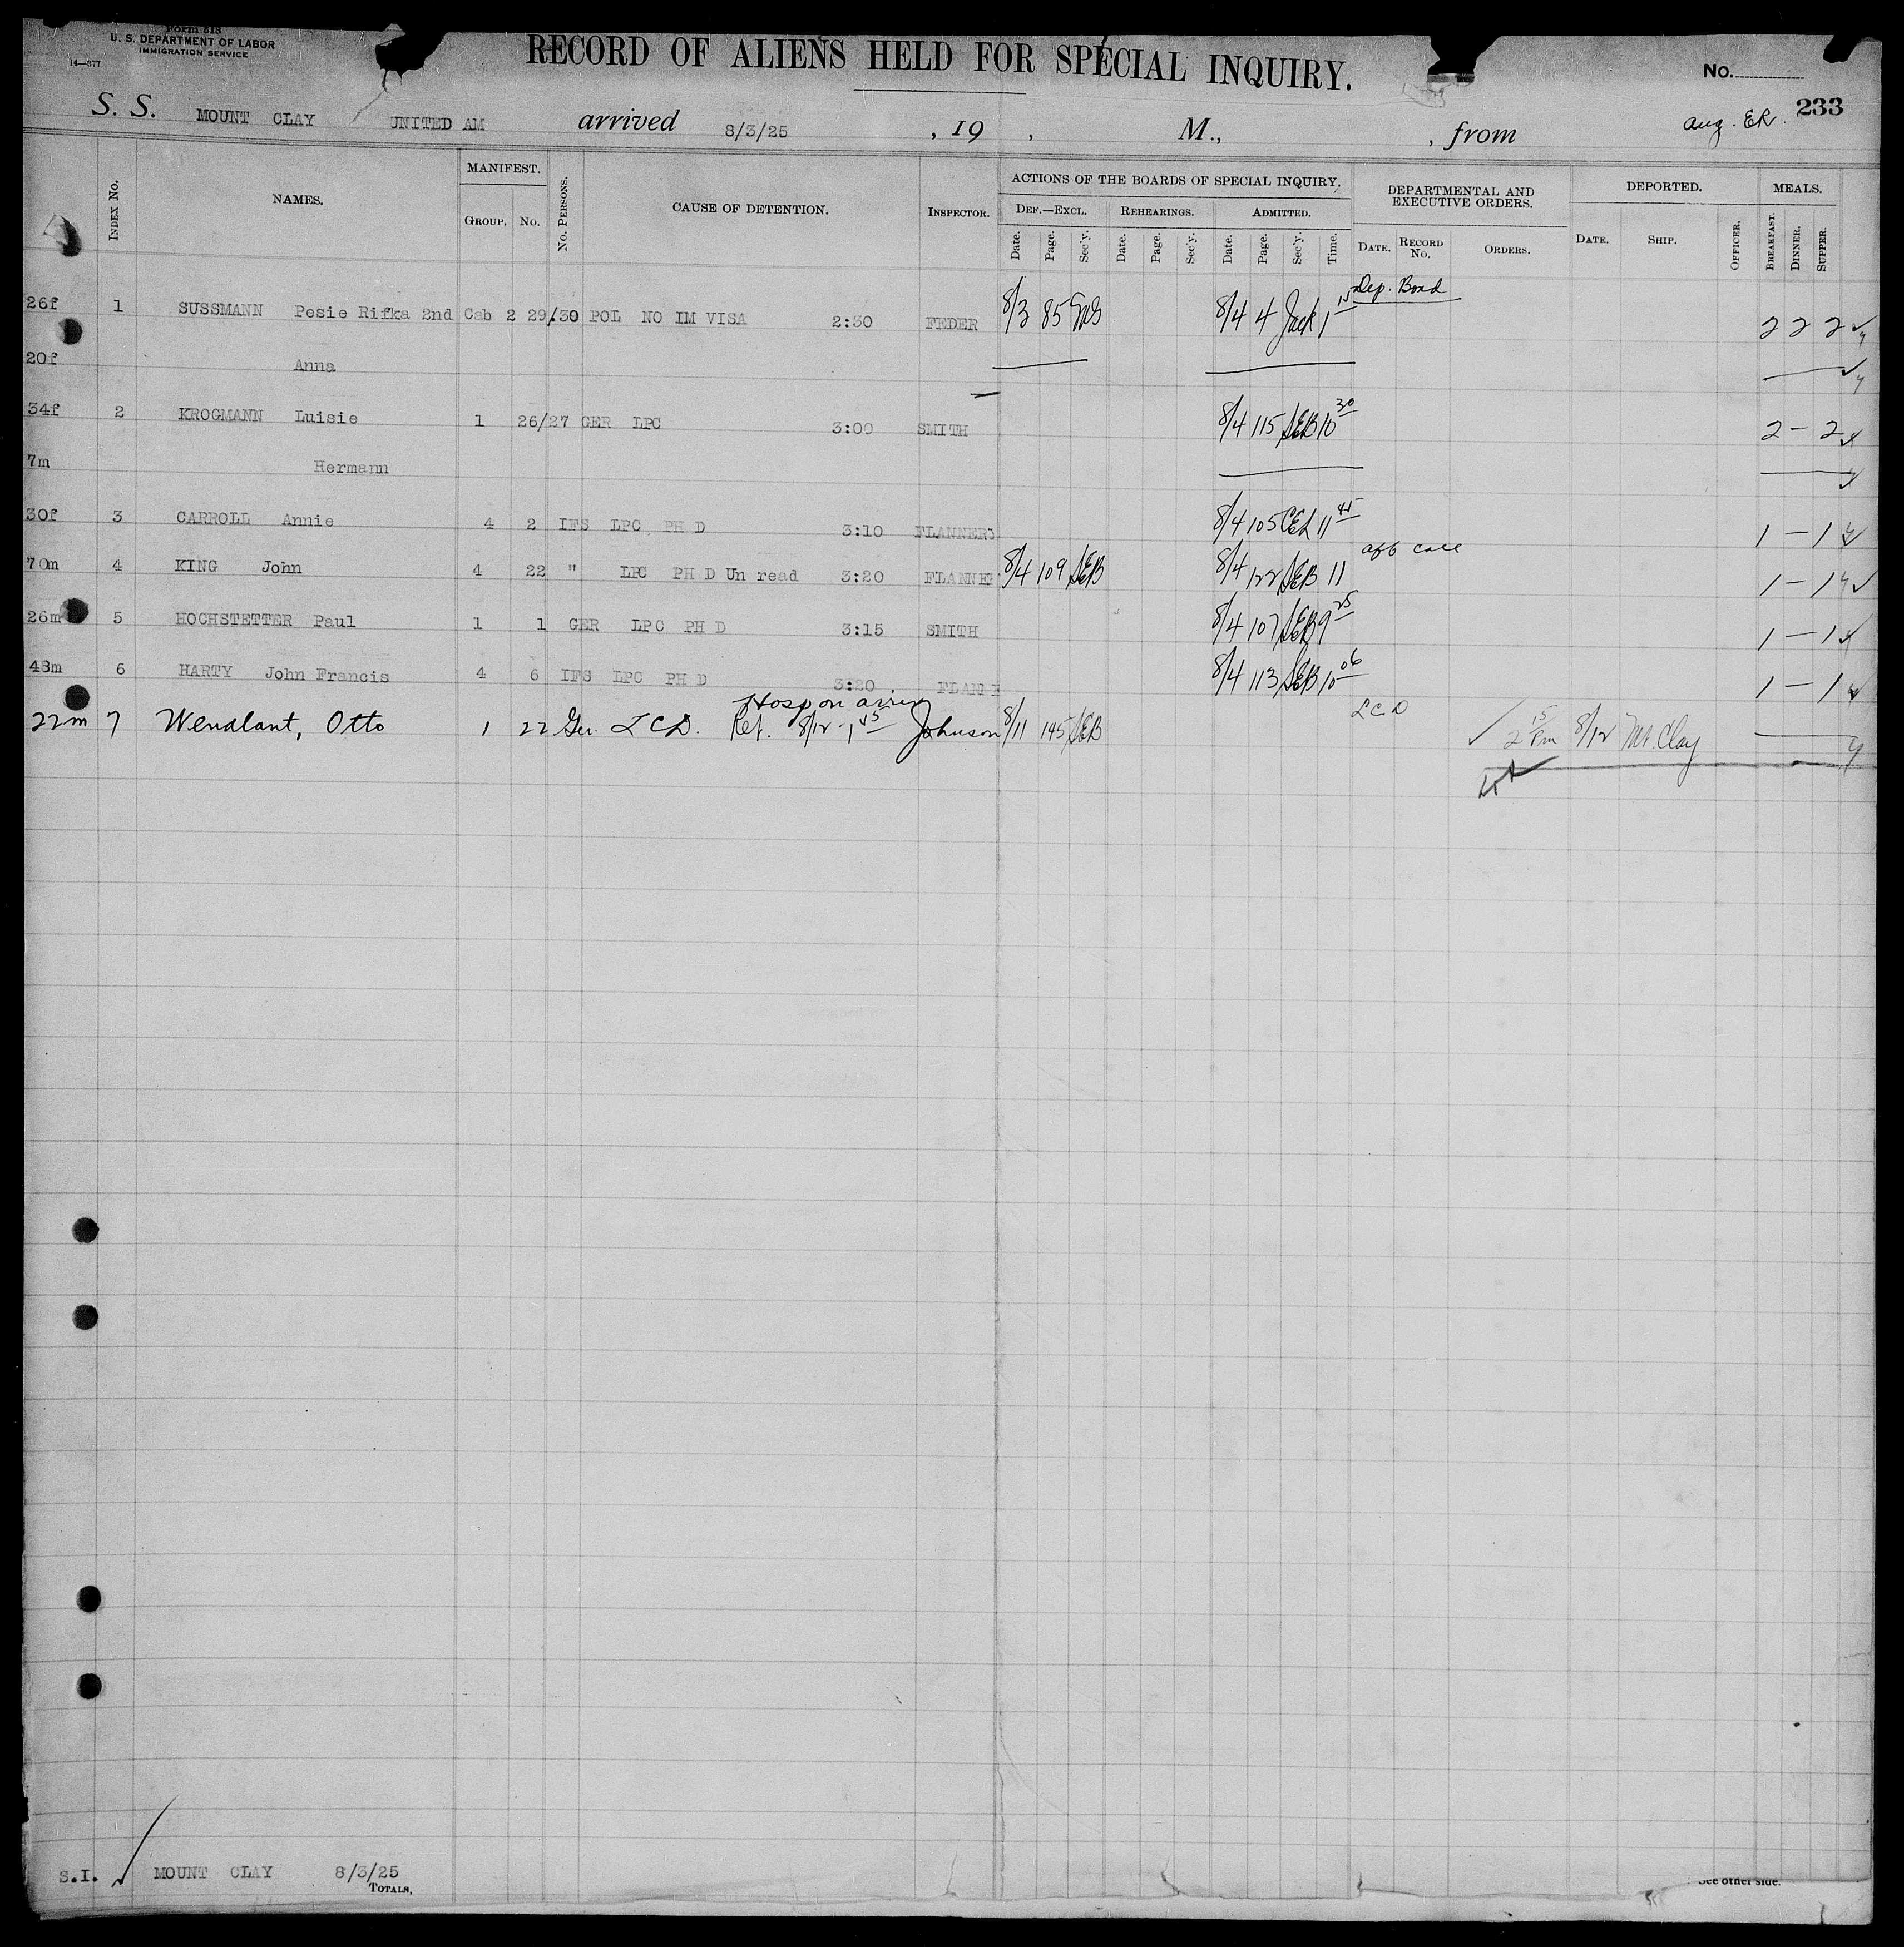 Form 818
U. S. DEPARTMENT OF LABOR
IMMIGRATION SERVICE
14—377
RECORD OF ALIENS HELD FOR SPECIAL INQUIRY.
No.
233
S. S. MOUNT CLAY UNITED AM arrived 8/3/25 , 19 , M., , from Aug. ER.
Index No. NAMES. MANIFEST. Group. No. No. Persons. CAUSE OF DETENTION. Inspector. ACTIONS OF THE BOARDS OF SPECIAL INQUIRY. Def.—Excl. Date. Page. Sec'y. Rehearings. Date. Page. Sec'y. Admitted. Date. Page. Sec'y. Time. DEPARTMENTAL AND EXECUTIVE ORDERS. Date. Record No. Orders. DEPORTED. Date. Ship. Officer. MEALS. Breakfast. Dinner. Supper.
Dep. Bond
26f 1 SUSSMANN Pesie Rifka 2nd Cab 2 29/30 POL NO IM VISA 2:30 FEDER 8/3 85 8/4 4 Jack 1 15 2 2 2
20f Anna
34f 2 KROGMANN Luisie 1 26/27 GER LPC 3:00 SMITH 8/4 115 SEB 10 30 2 — 2
7m Hermann
30f 3 CARROLL Annie 4 2 IFS LPC PH D 3:10 FLANNERY 8/4 105 CEL 11 45 1 — 1
70m 4 KING John 4 22 " LPC PH D Un read 3:20 FLANNE 8/4 109 SEB 8/4 122 SEB 11 aff case 1 — 1
26m 5 HOCHSTETTER Paul 1 1 GER LPC PH D 3:15 SMITH 8/4 107 SEB 9 25 1 — 1
48m 6 HARTY John Francis 4 6 IFS LPC PH D 3:20 FLAN E 8/4 113 SEB 10 06 1 — 1
Hosp on arriv
22m 7 Wendlant, Otto 1 22 Ger. LCD. Ret. 8/12 - 1 45 Johnson 8/11 145 SEB LCD 2 15 Pm 8/12 Mt. Clay
S.I. MOUNT CLAY 8/3/25
Totals,
See other side.